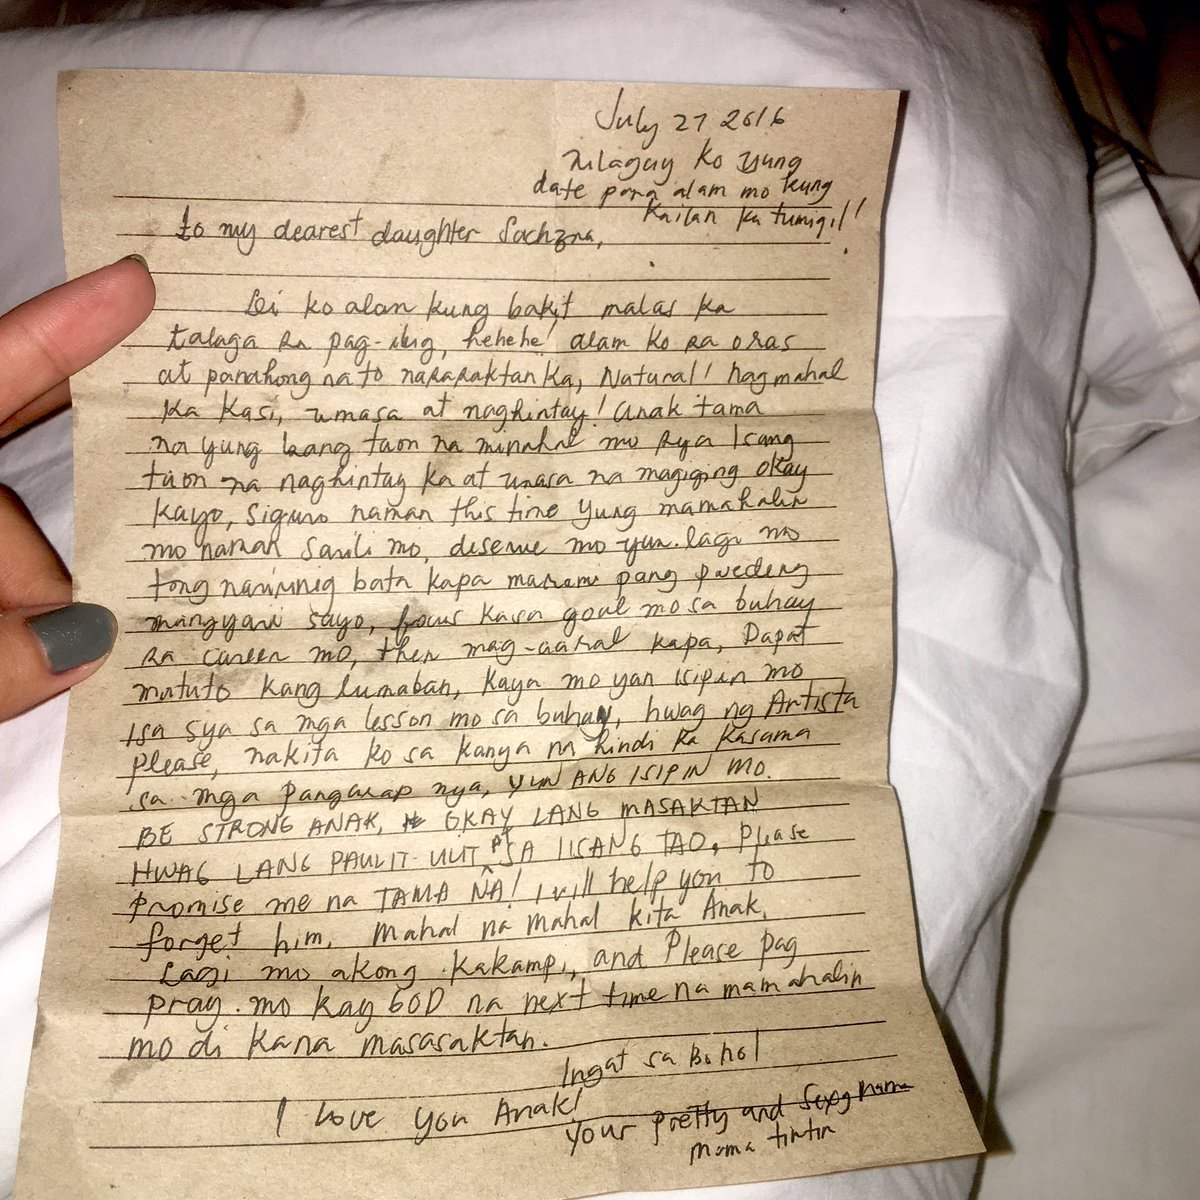 July 27 2016
nilagay ko yung
date para alam mo kung
kailan ka tumigil!!
to my dearest daughter Sachzna,
Di ko alam kung bakit malas ka
talaga sa pag-ibig, hehehe! alam ko sa oras
at panahong na to nasasaktan ka, Natural! nagmahal
ka kasi, umasa at naghintay! anak tama
na yung isang taon na minahal mo sya Isang
taon na naghintay ka at umasa na magiging okay
kayo, siguro naman this time yung mamahalin
mo naman sarili mo, deserve mo yun. lagi mo
tong bata kapa marami pang pwedeng
mangyari sayo, focus kasa goal mo sa buhay
sa career mo, then mag-aaral kapa, Dapat
matuto kang lumaban, kaya mo yan isipin mo
isa sya sa mga lesson mo sa buhay, hwag ng Artista
please, nakita ko sa kanya na hindi ka kasama
sa mga pangarap nya, YUN ANG ISIPIN MO.
BE STRONG ANAK, OKAY LANG MASAKTAN
HWAG LANG PAULIT-ULIT SA IISANG TAO, Please
promise me na TAMA NA! I will help you to
forget him, mahal na mahal kita Anak,
Lagi mo akong kakampi, and Please pag
pray mo kay GOD na next time na mamahalin
mo di kana masasaktan.
Ingat sa Bohol
I Love you Anak!
your pretty and sexy mama
mama tintin